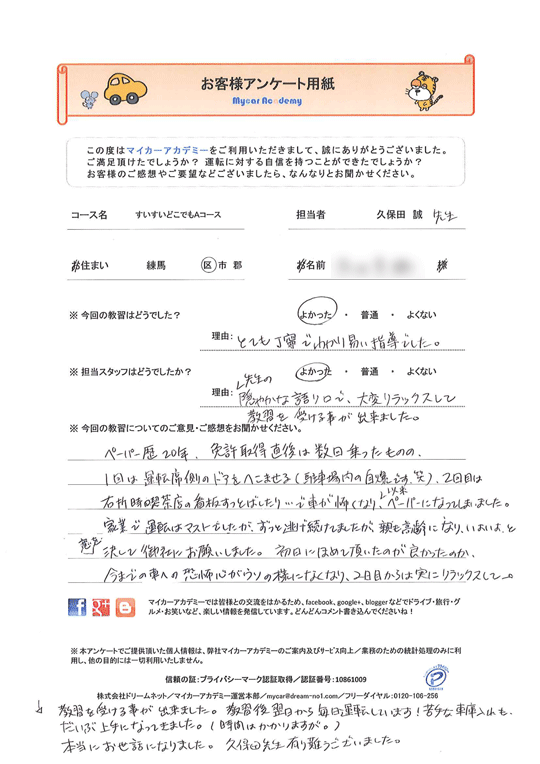 お客様アンケート用紙
Mycar Academy
この度はマイカーアカデミーをご利用いただきまして、誠にありがとうございました。
ご満足頂けたでしょうか？ 運転に対する自信を持つことができたでしょうか？
お客様のご感想やご要望などございましたら、なんなりとお聞かせください。
コース名 すいすいどこでもAコース 担当者 久保田 誠 先生
お住まい 練馬 区 市 郡 お名前 様
※ 今回の教習はどうでした？ よかった ・ 普通 ・ よくない
理由： とても丁寧でわかり易い指導でした。
※ 担当スタッフはどうでしたか？ よかった ・ 普通 ・ よくない
理由： 先生の
隠やかな語り口で、大変リラックスして
教習を受ける事が出来ました。
※ 今回の教習についてのご意見・ご感想をお聞かせください。
ペーパー歴20年、免許取得直後は数回乗ったものの、
1回は運転席側のドアをへこませる(駐車場内の自爆です、笑)、2回目は
右折時喫茶店の看板すっとばしたり…で車が怖くなり、以来ペーパーになってしまいました。
家業で運転はマストでしたが、ずっと逃げ続けてましたが、親も高齢になり、いよいよ、と
意を決して御社にお願いしました。初日にほめて頂いたのが良かったのか、
今までの車への恐怖心がウソの様になくなり、2日目からは実にリラックスして
マイカーアカデミーでは皆様との交流をはかるため、facebook, google+, bloggerなどでドライブ・旅行・グ
ルメ・お笑いなど、楽しい情報を発信しています。どんどんコメント書き込んでくださいね！
※ 本アンケートでご提供頂いた個人情報は、弊社マイカーアカデミーのご案内及びサービス向上／業務のための統計処理のみに利
用し、他の目的には一切利用いたしません。
信頼の証：プライバシーマーク認証取得／認証番号：10861009
株式会社ドリームネット／マイカーアカデミー運営本部／mycar@dream-no1.com／フリーダイヤル：0120-106-256
教習を受ける事が出来ました。教習後翌日から毎日運転しています！苦手な車庫入れも、
だいぶ上手になってきました。(時間はかかりますが。)
本当にお世話になりました。久保田先生有り難うございました。